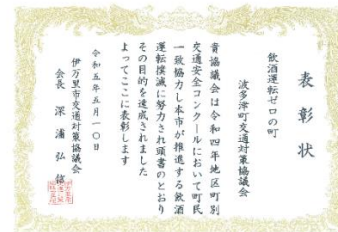 表彰状
飲酒運転ゼロの町
波多津町交通対策協議会
貴協議会は令和四年地区町別
交通安全コンクールにおいて町民
一致協力し本市が推進する飲酒
運転撲滅に努力され頭書のとおり
その目的を達成されました
よってここに表彰します
令和五年五月一〇日
伊万里市交通対策協議会
会長 深浦弘信